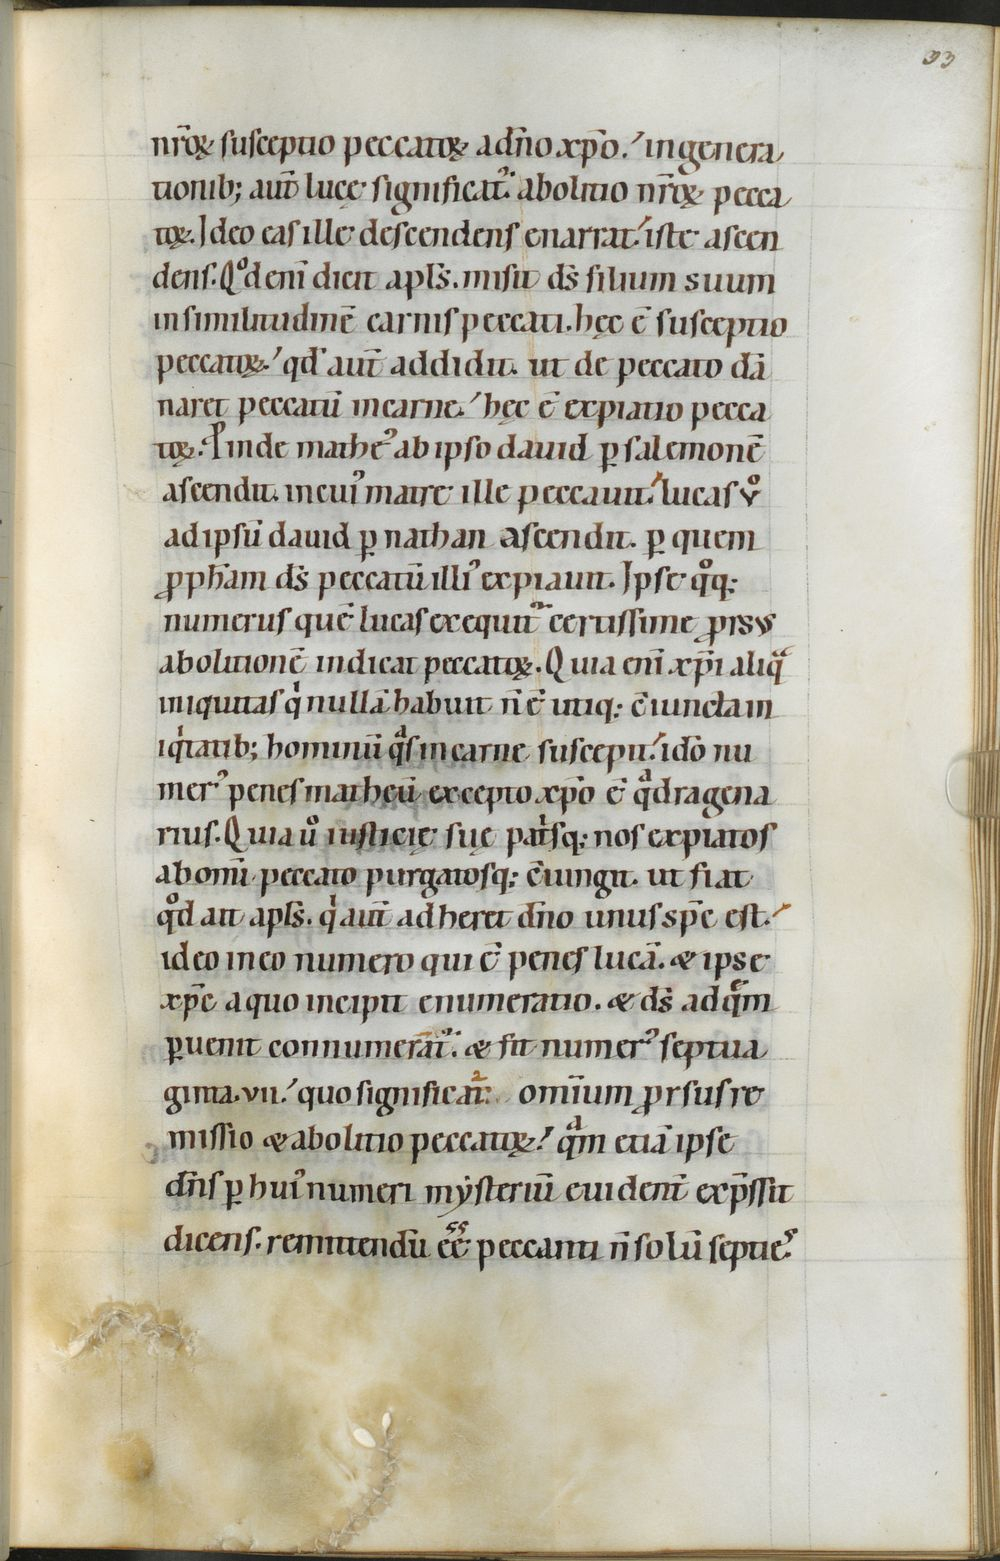 33
nr̄oꝝ susceptio peccatoꝝ a dn̄o xp̄o. in genera
tionib; aut̄ lucę significat᷒. abolitio nr̄oꝝ pecca
toꝝ. Ideo eas ille descendens enarrat. iste ascen
dens. Qͦd enī dicit apls̄. misit ds̄ filium suum
in similitudinē carnis peccati. hęc ē susceptio
peccatoꝝ. qd̄ aut̄ addidit. ut de peccato dā
naret peccatū in carne. hęc ē expiatio pecca
toꝝ. Proinde mathe᷒ ab ipso dauid ꝑ salemonē
ascendit. in cui᷒ matre ille peccauit. lucas vͦ
ad ipsū dauid ꝑ nathan ascendit. ꝑ quem
ꝓph̄am ds̄ peccatū illi᷒ expiauit. Ipse qͦq;
numerus quē lucas exequit᷒ certissime ꝓrsus
abolitionē indicat peccatoꝝ. Quia enī xp̄i aliqͣ
iniquitas qⁱ nullā habuit n̄ ē utiq; c̄iuncta in
iqⁱtatib; hominū qͣs in carne suscepit. idō nu
mer᷒ penes matheū excepto xp̄o ē qͣdragena
rius. Quia ū iusticię suę patⁱsq; nos expiatos
ab om̄i peccato purgatosq; c̄iungit. ut fiat
qͦd ait apls̄. qⁱ aut̄ adheret dn̄o unus sp̄c est.
ideo in eo numero qui ē penes lucā. & ipse
xp̄c a quo incipit enumeratio. & ds̄ ad quē̄m
ꝑuenit connumerāt᷒. & fit numer᷒ septua
ginta. vii. quo significāt᷒. om̄ium ꝓrsus re
missio & abolitio peccatoꝝ. qͣm etiā ipse
dn̄s ꝑ hui᷒ numeri mẏsteriū euident̄ exp̄ssit
dicens. remittendū ēē peccanti n̄ solū septie᷒